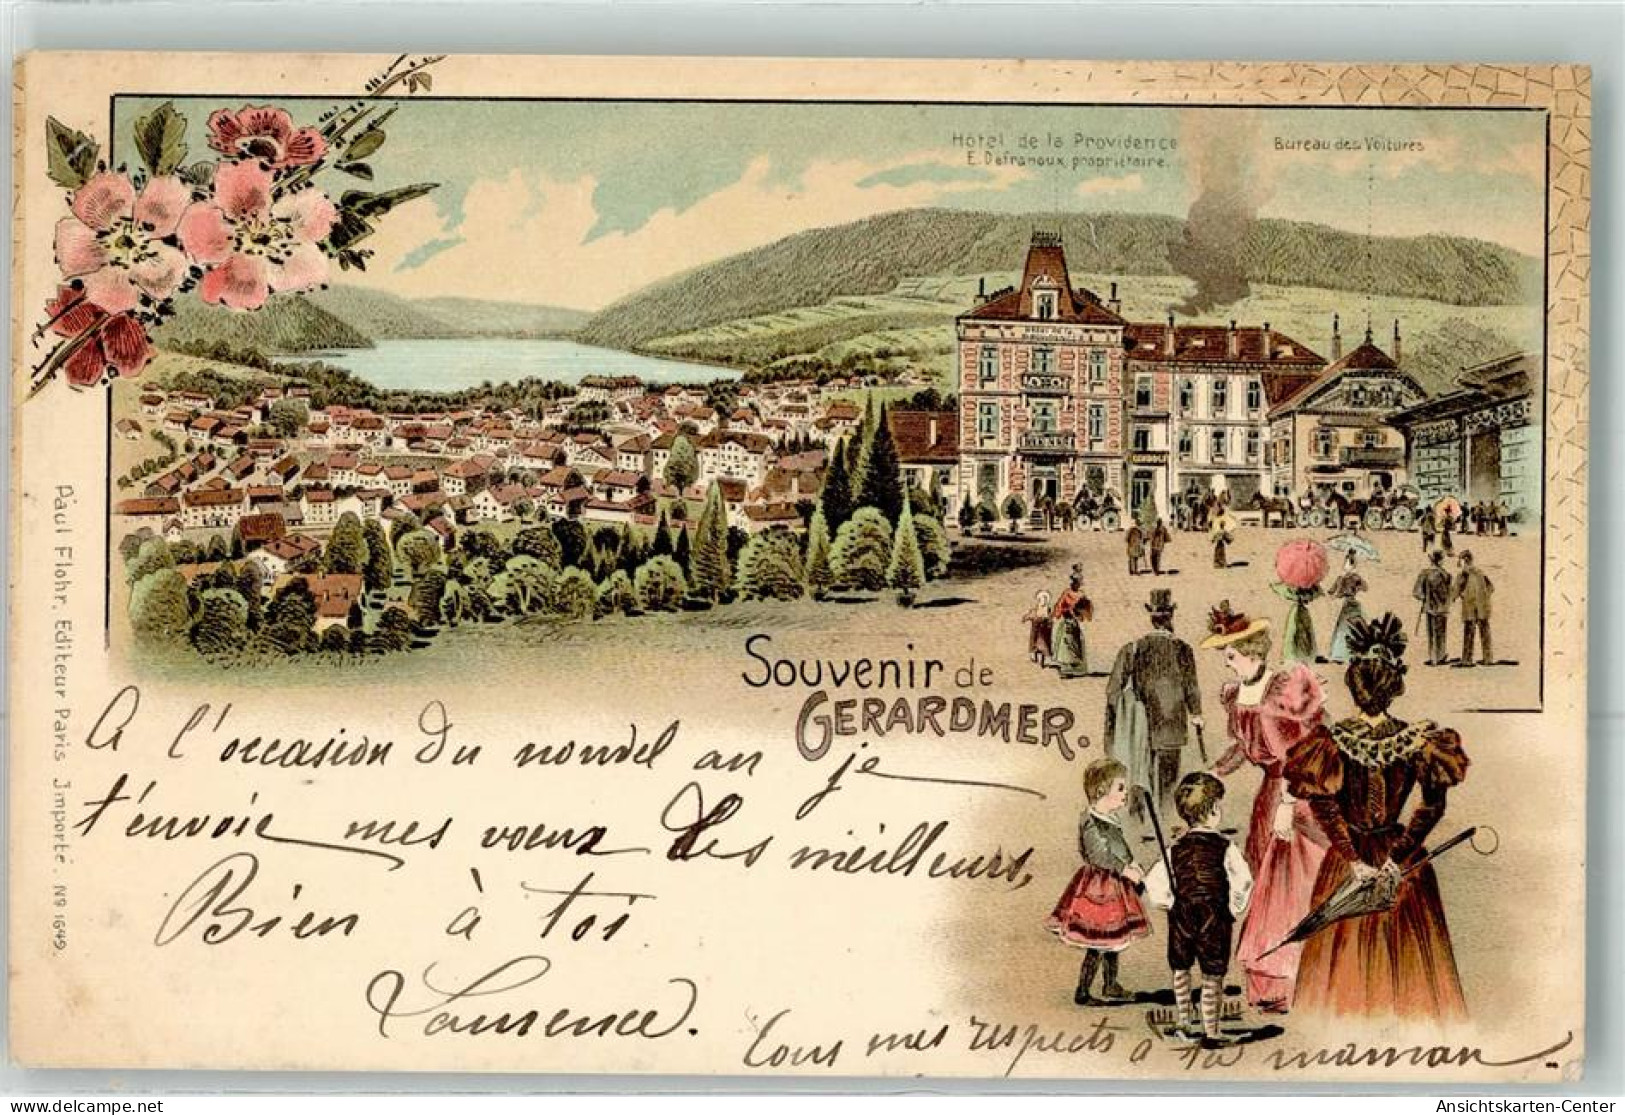 Hôtel de la Providence
E. Defranoux, propriétaire.
Bureau des Voitures
Souvenir de
GERARDMER.
A l'occasion du nouvel an je
t'envoie mes voeux les meilleurs,
Bien à toi
Laurence.
Tous mes respects à ta maman
Paul Flohr, Editeur Paris Importé. No 1649.
Ansichtskarten-Center